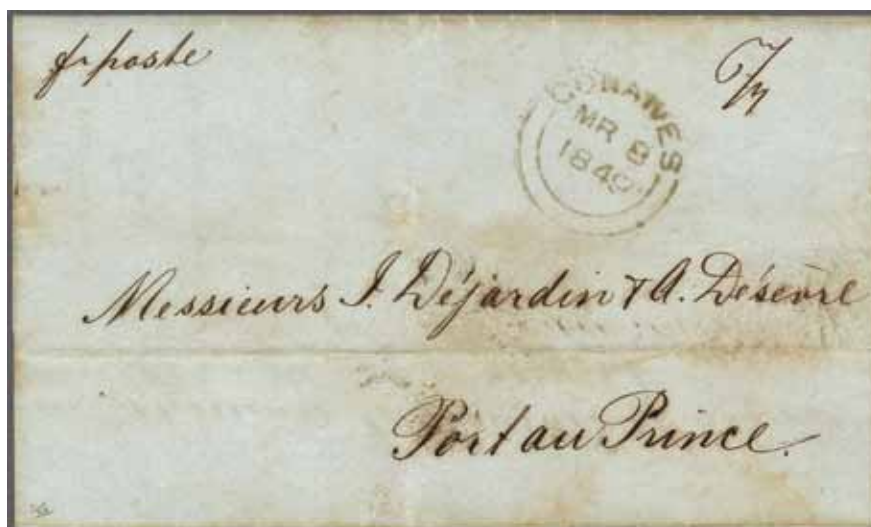 pr poste
GONAIVES
MR 8
1849
Messieurs J. Déjardin & A. Désèvre
Port au Prince.